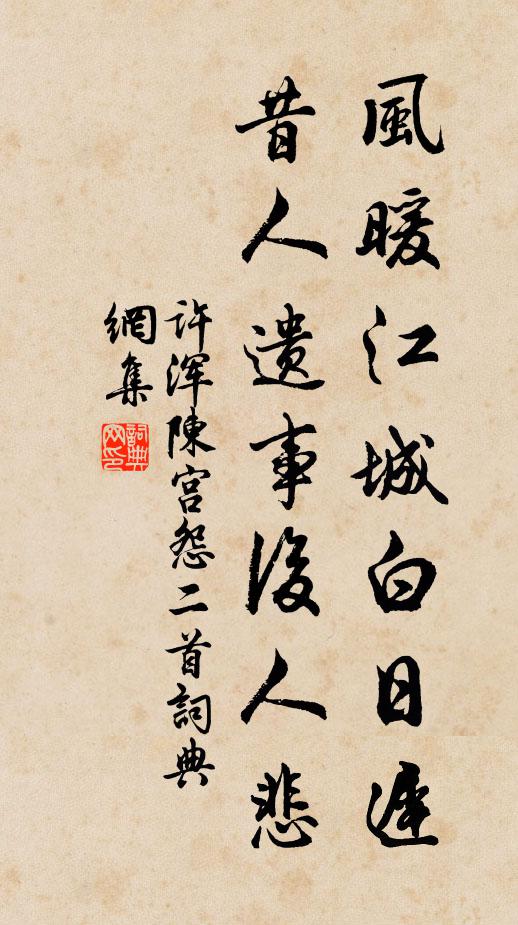 風暖江城白日遲
昔人遺事後人悲
許渾陳宮怨二首詞典
網集
詞典网印